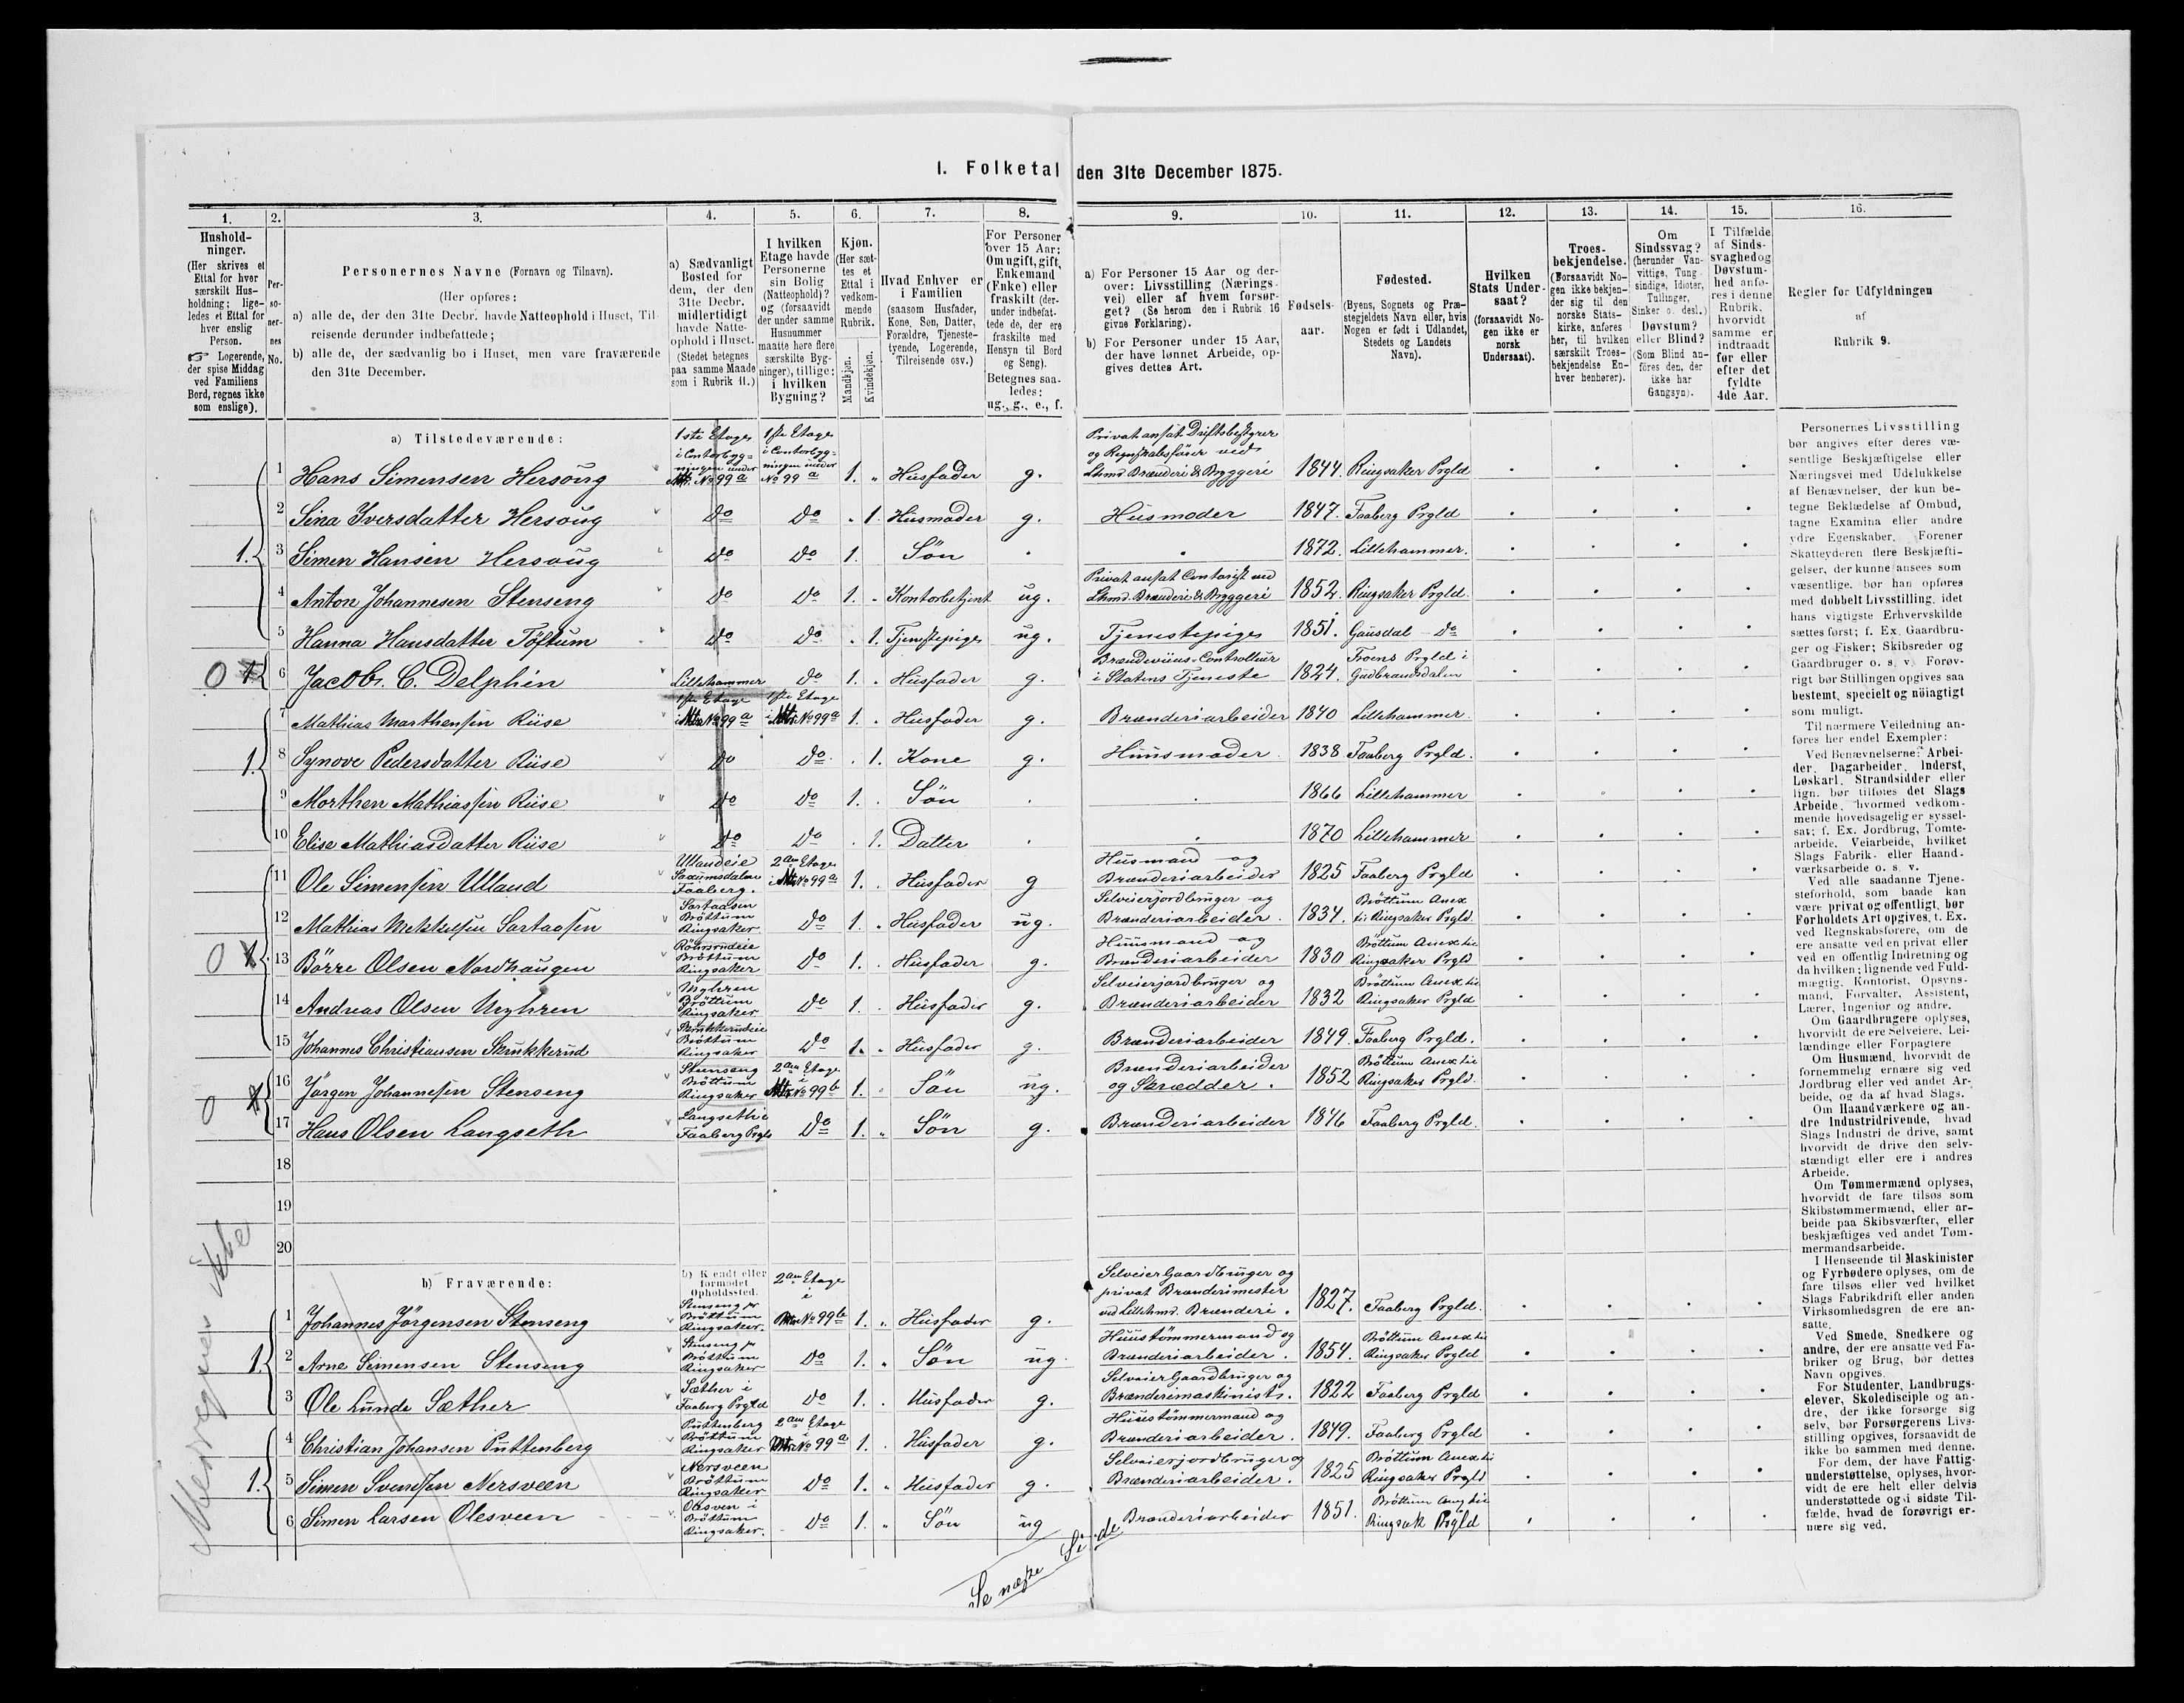 I. Folketal den 31te December 1875.
1. 2. 3. 4. 5. 6. 7. 8. 9. 10. 11. 12. 13. 14. 15. 16.
Hushold-
ninger.
(Her skrives et
Ettal for hver
særskilt Hus-
holdning; lige-
ledes et Ettal for
hver enslig
Person.
☞ Logerende,
der spise Middag
ved Familiens
Bord, regnes ikke
som enslige).
Per-
so-
ner-
nes
No.
Personernes Navne (Fornavn og Tilnavn).
(Her opføres:
a) alle de, der den 31te Decbr. havde Natteophold i Huset, Til-
reisende derunder indbefattede;
b) alle de, der sædvanlig bo i Huset, men vare fraværende
den 31te December.
a) Sædvanligt
Bosted for
dem, der den
31te Decbr.
midlertidigt
havde Natte-
ophold i Huset.
(Stedet betegnes
paa samme Maade
som i Rubrik 11.)
I hvilken
Etage havde
Personerne
sin Bolig
(Natteophold)?
og (forsaavidt
der under samme
Husnummer
maatte høre flere
særskilte Byg-
ninger), tillige:
i hvilken
Bygning?
Kjøn.
(Her sæt-
tes et
Ettal i
vedkom-
mende
Rubrik.
Mandkjøn.
Kvindekjøn.
Hvad Enhver er
i Familien
(saasom Husfader,
Kone, Søn, Datter,
Forældre, Tjeneste-
tyende, Logerende,
Tilreisende osv.)
For Personer
over 15 Aar:
Om ugift, gift,
Enkemand
(Enke) eller
fraskilt (der-
under indbefat-
tede de, der ere
fraskilte med
Hensyn til Bord
og Seng).
Betegnes saa-
ledes:
ug., g., e., f.
a) For Personer 15 Aar og der-
over: Livsstilling (Nærings-
vei) eller af hvem forsør-
get? (Se herom den i Rubrik 16
givne Forklaring).
b) For Personer under 15 Aar,
der have lønnet Arbeide, op-
gives dettes Art.
Fødsels-
aar.
Fødested.
(Byens, Sognets og Præ-
stegjeldets Navn eller, hvis
Nogen er født i Udlandet,
Stedets og Landets
Navn).
Hvilken
Stats Under-
saat?
(forsaavidt No-
gen ikke er
norsk
Undersaat).
Troes-
bekjendelse.
(Forsaavidt No-
gen ikke bekjen-
der sig til den
norske Stats-
kirke, anføres
her, til hvilken
særskilt Troes-
bekjendelse En-
hver henhører).
Om
Sindssvag?
(herunder Van-
vittige, Tung-
sindige, Idioter,
Tullinger,
Sinker o. desl.)
Døvstum?
eller Blind?
(Som Blind an-
føres den, der
ikke har
Gangsyn).
I Tilfælde
af Sinds-
svaghed og
Døvstum-
hed anfø-
res i denne
Rubrik,
hvorvidt
samme er
indtraadt
før eller
efter det
fyldte
4de Aar.
Regler for Udfyldningen
af
Rubrik 9.
a) Tilstedeværende:
1 Hans Simensen Hersoug 1ste Etage i Contorbyg=ningen under Mtr. No 99 a 1ste Etage i Contorbyg=ningen under No 99 a 1. " Husfader g. Privat ansat Driftsbestyrer og Regnskabsfører ved Lhmr. Brænderi & Bryggeri 1844. Ringsaker Prgld
2 Sina Iversdatter Hersoug Do Do " 1. Husmoder g. Husmoder 1847. Faaberg Prgld
1. 3 Simen Hansen Hersoug Do Do 1. Søn 1872. Lillehammer.
4 Anton Johannesen Stenseng Do Do 1. Kontorbetjent ug. Privat ansat Contorist ved Lhmr. Brænderi & Bryggeri 1852. Ringsaker Prgld.
5 Hanna Hansdatter Töftum Do Do 1. Tjenestepige ug. Tjenestepige 1851. Gausdal Do
0 1 6 Jacob. C. Delphin Lillehammer Do 1. Husfader g. Brændeviins-Controlleur i Statens Tjeneste 1824. Froens Prgld i Gudbrandsdalen
7 Mathias Marthensen Riise 1ste Etage i Mtr No 99 a 1ste Etage i Mtr No 99 a 1. Husfader g. Brænderiarbeider 1840 Lillehammer.
1. 8 Synove Pedersdatter Riise Do Do 1. Kone g. Huusmoder 1838 Faaberg Prgld.
9 Morthen Mathiassen Riise Do Do 1. Søn 1866 Lillehammer
10 Elise Mathiasdatter Riise Do Do 1. Datter 1870 Lillehammer
11 Ole Simensen Ulland Ullandeie Saxumsdalen Faaberg. 2den Etage i Mtr No 99 a 1. Husfader g Husmand og Brænderiarbeider 1825 Faaberg Prgld
12 Mathias Mekkelsen Sartaasen Sartaasen Bröttum Ringsaker Do 1. Husfader ug. Selveierjordbruger og Brænderiarbeider. 1834. Bröttum Anex til Ringsaker Prgld.
0 13 Börre Olsen Nordhaugen Bröttum Ringsaker Do 1. Husfader g. Huusmand og Brænderiarbeider 1830 Bröttum Anex til Ringsaker Prgld
14 Andreas Olsen Myhren Myhren Bröttum Ringsaker Do 1. Husfader g. Selveierjordbruger og Brænderiarbeider 1832 Bröttum Anex til Ringsaker Prgld
15 Johannes Christiansen Skrukkerud Skrukkerudeie Bröttum Ringsaker Do 1. Husfader g. Brænderiarbeider 1849. Faaberg Prgld.
16 Jörgen Johannesen Stenseng Stenseng Bröttum Ringsaker 2den Etage i Mtr No 99 b 1. Søn ug. Brænderiarbeider og Skrædder. 1852 Bröttum Anex til Ringsaker Prgld.
0 17 Hans Olsen Langseth Langsethie Faaberg Prgld Do 1. Søn g. Brænderiarbeider 1846 Faaberg Prgld.
18
19
20
Medregnes ikke
b) Fraværende: b) Kjendt eller formodet Opholdssted.
1 Johannes Jörgensen Stenseng Stenseng pr Bröttum Ringsaker. 2den Etage i Mtr No 99 b 1. Husfader g. Selveier Gaardbruger og privat Brænderimester ved Lillehmr. Brænderi. 1827. Faaberg Prgld.
1. 2 Arne Simensen Stenseng Stenseng pr Bröttum Ringsaker Do 1. Søn ug. Huustömmermand og Brænderiarbeider. 1854. Bröttum Anex til Ringsaker Prgld
3 Ole Lunde Sæther Sæther i Faaberg Prgld Do 1. Husfader g. Selveier Gaardbruger og Brænderimaskinist. 1822 Faaberg Prgld
4 Christian Johansen Puttenberg Puttenberg Bröttum Ringsaker 2den Etage i Mtr No 99 a 1. Husfader g. Huustömmermand og Brænderiarbeider. 1849. Faaberg Prgld
1. 5 Simen Svendsen Nersveen Nersveen Bröttum Ringsaker Do 1. Husfader g. Selveierjordbruger og Brænderiarbeider. 1825 Bröttum Anex til Ringsaker Prgld
6 Simen Larsen Olesveen Olesven i Bröttum Ringsaker. Do 1. Søn ug Brænderiarbeider 1851. Bröttum Anex til Ringsak Prgld
Se næste Side
Personernes Livsstilling
bør angives efter deres væ-
sentlige Beskjæftigelse eller
Næringsvei med Udelukkelse
af Benævnelser, der kun be-
tegne Beklædelse af Ombud,
tagne Examina eller andre
ydre Egenskaber. Forener
Skatteyderen flere Beskjæfti-
gelser, der kunne ansees som
væsentlige, bør han opføres
med dobbelt Livsstilling, idet
hans vigtigste Erhvervskilde
sættes først; f. Ex. Gaardbru-
ger og Fisker; Skibsreder og
Gaardbruger o. s. v. Forøv-
rigt bør Stillingen opgives saa
bestemt, specielt og nöiagtigt
som muligt.
Til nærmere Veiledning an-
føres her endel Exempler:
Ved Benævnelserne: Arbei-
der, Dagarbeider, Inderst,
Løskarl, Strandsidder eller
lign. bør tilføies det Slags
Arbeide, hvormed vedkom-
mende hovedsagelig er syssel-
sat; f. Ex. Jordbrug, Tomte-
arbeide, Veiarbeide, hvilket
Slags Fabrik- eller Haand-
værksarbeide o. s. v.
Ved alle saadanne Tjene-
steforhold, som baade kan
være privat og offentligt, bør
Forholdets Art opgives, t. Ex.
ved Regnskabsførere, om de
ere ansatte ved en privat eller
ved en offentlig Indretning og
da hvilken; lignende ved Fuld-
mægtig, Kontorist, Opsyns-
mand, Forvalter, Assistent,
Lærer, Ingeniør og andre.
Om Gaardbrugere oplyses,
hvorvidt de ere Selveiere, Lei-
lændinge eller Forpagtere
Om Husmænd, hvorvidt de
fornemmelig ernære sig ved
Jordbrug eller ved andet Ar-
beide, og da af hvad Slags.
Om Haandværkere og an-
dre Industridrivende, hvad
Slags Industri de drive, samt
hvorvidt de drive den selv-
stændigt eller ere i andres
Arbeide.
Om Tømmermænd oplyses,
hvorvidt de fare tilsøs som
Skibstømmermænd, eller ar-
beide paa Skibsværfter, eller
beskjæftiges ved andet Tøm-
mermandsarbeide.
I Henseende til Maskinister
og Fyrbødere oplyses, om de
fare tilsøs eller ved hvilket
Slags Fabrikdrift eller anden
Virksomhedsgren de ere an-
satte.
Ved Smede, Snedkere og
andre, der ere ansatte ved Fa-
briker og Brug, bør dettes
Navn opgives.
For Studenter, Landbrugs-
elever, Skoledisciple og an-
dre, der ikke forsørge sig
selv, bør Forsørgerens Livs-
stilling opgives, forsaavidt de
ikke bo sammen med denne.
For dem, der have Fattig-
understøttelse, oplyses, hvor-
vidt de ere helt eller delvis
understøttede og i sidste Til-
fælde, hvad de forøvrigt er-
nære sig ved.